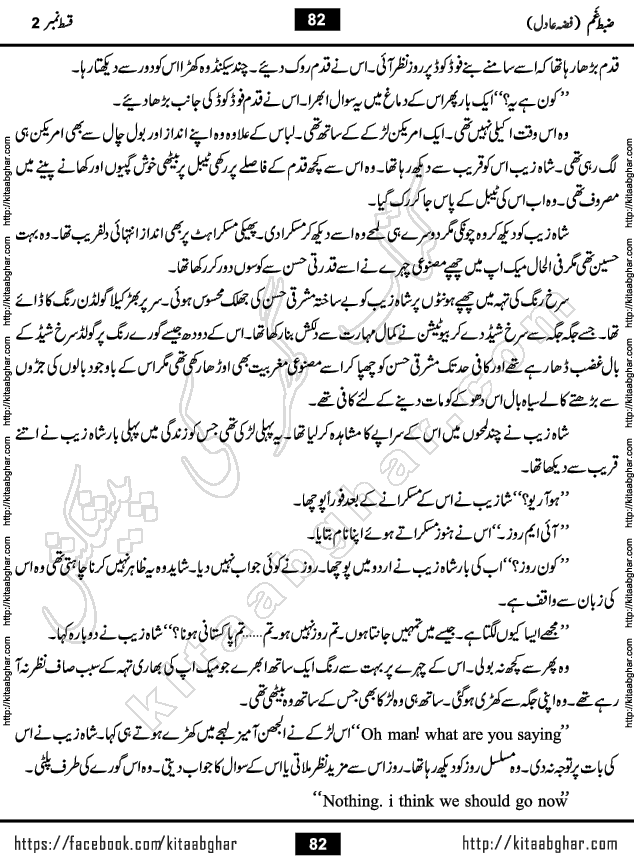 ضبطِ غم (فضہ عادل)
82
قسط نمبر 2
قدم بڑھا رہا تھا کہ اسے سامنے بنے فوڈ کوڈ پر روز نظر آئی۔ اس نے قدم روک دیئے۔ چند سیکنڈ وہ کھڑا اس کو دور سے دیکھتا رہا۔
’’کون ہے یہ؟‘‘ ایک بار پھر اس کے دماغ میں یہ سوال ابھرا۔ اس نے قدم فوڈ کوڈ کی جانب بڑھا دیئے۔
وہ اس وقت اکیلی نہیں تھی۔ ایک امریکن لڑکے کے ساتھ تھی۔ لباس کے علاوہ وہ اپنے انداز اور بول چال سے بھی امریکن ہی
لگ رہی تھی۔ شاہ زیب اس کو قریب سے دیکھ رہا تھا۔ وہ اس سے کچھ قدم کے فاصلے پر رکھی ٹیبل پر بیٹھی خوش گپیوں اور کھانے پینے میں
مصروف تھی۔ وہ اب اس کی ٹیبل کے پاس جا کر رک گیا۔
شاہ زیب کو دیکھ کر وہ چونکی مگر دوسرے ہی لمحے وہ اسے دیکھ کر مسکرا دی۔ پھیکی مسکراہٹ پر بھی انداز انتہائی دلفریب تھا۔ وہ بہت
حسین تھی مگر فی الحال میک اپ میں چھپے مصنوعی چہرے نے اسے قدرتی حسن سے کوسوں دور کر رکھا تھا۔
سرخ رنگ کی تہہ میں چھپے ہونٹوں پر شاہ زیب کو بے ساختہ مشرقی حسن کی جھلک محسوس ہوئی۔ سر پر بھڑکیلا گولڈن رنگ کا ڈائے
تھا۔ جسے جگہ جگہ سے سرخ شیڈ دے کر بیوٹیشن نے کمال مہارت سے دلکش بنا رکھا تھا۔ اس کے دودھ جیسے گورے رنگ پر گولڈ سرخ شیڈ کے
بال غضب ڈھا رہے تھے اور کافی حد تک مشرقی حسن کو چھپا کر اسے مصنوعی مغربیت بھی اوڑھا رکھی تھی مگر اس کے باوجود بالوں کی جڑوں
سے بڑھتے کالے سیاہ بال اس دھوکے کو مات دینے کے لئے کافی تھے۔
شاہ زیب نے چند لمحوں میں اس کے سراپے کا مشاہدہ کر لیا تھا۔ یہ پہلی لڑکی تھی جس کو زندگی میں پہلی بار شاہ زیب نے اتنے
قریب سے دیکھا تھا۔
’’ہو آر یو؟‘‘ شازیب نے اس کے مسکرانے کے بعد فوراً پوچھا۔
’’آئی ایم روز۔‘‘ اس نے ہنوز مسکراتے ہوئے اپنا نام بتایا۔
’’کون روز؟‘‘ اب کی بار شاہ زیب نے اردو میں پوچھا۔ روز نے کوئی جواب نہیں دیا۔ شاید وہ یہ ظاہر نہیں کرنا چاہتی تھی وہ اس
کی زبان سے واقف ہے۔
’’مجھے ایسا کیوں لگتا ہے۔ جیسے میں تمہیں جانتا ہوں۔ تم روز نہیں ہو۔ تم......تم پاکستانی ہونا؟‘‘ شاہ زیب نے دوبارہ کہا۔
وہ پھر سے کچھ نہ بولی۔ اس کے چہرے پر بہت سے رنگ ایک ساتھ ابھرے جو میک اپ کی بھاری تہہ کے سبب صاف نظر نہ آ
رہے تھے۔ وہ اپنی جگہ سے کھڑی ہو گئی۔ ساتھ ہی وہ لڑکا بھی جس کے ساتھ وہ بیٹھی تھی۔
’’Oh man! what are you saying‘‘ اس لڑکے نے الجھن آمیز لہجے میں کھڑے ہوتے ہی کہا۔ شاہ زیب نے اس
کی بات پر توجہ نہ دی۔ وہ مسلسل روز کو دیکھ رہا تھا۔ روز اس سے مزید نظر ملاتی یا اس کے سوال کا جواب دیتی۔ وہ اس گورے کی طرف پلٹی۔
’’Nothing. i think we should go now‘‘
https://facebook.com/kitaabghar
82
http://kitaabghar.com
http://kitaabghar.com http://kitaabghar.com http://kitaabghar.com http://kitaabghar.com http://kitaabghar.com http://kitaabghar.com
http://kitaabghar.com http://kitaabghar.com http://kitaabghar.com http://kitaabghar.com http://kitaabghar.com http://kitaabghar.com
کتاب گھر کی پیشکش
kitaabghar.com